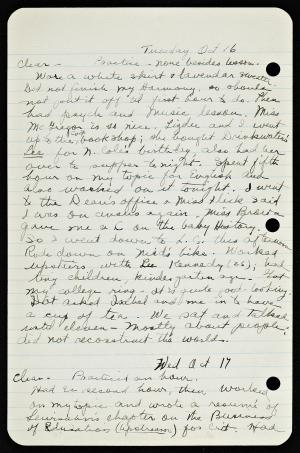 Tuesday Oct 16
Clear - Practice - none besides lesson.
Wore a white skirt & lavendar sweater.
Did not finish my harmony, so should
not put it off 'til first hour to do. Then
had psych and music lesson. Miss
McGregor is so nice. Lydie and I went
up to the book shop; she bought Drinkwater's
for N. Cole's birthday, also had her
over to supper tonight. Spent fifth
hour on my topic for English and
also worked on it tonight. I went
to the Dean's office & Miss said
I was on again. Miss Brown
gave me a C on the baby History.
So I went down to L. C. this afternoon
Rode down on bike. Worked
upstairs with Kennedy (26), had
tiny children, kindergarten age. Got
my college ring. It's quite good-looking.
Dot asked Isabel and me in to have
a cup of tea. We sat and talked
until eleven - Mostly about people,
did not reconstruct the world.
Wed Oct 17
Clear - Practiced an hour.
Had Ec second hour, then worked
on my topic and wrote a resume of
chapter on the Business
of Education (Upstream) for Lit. Had